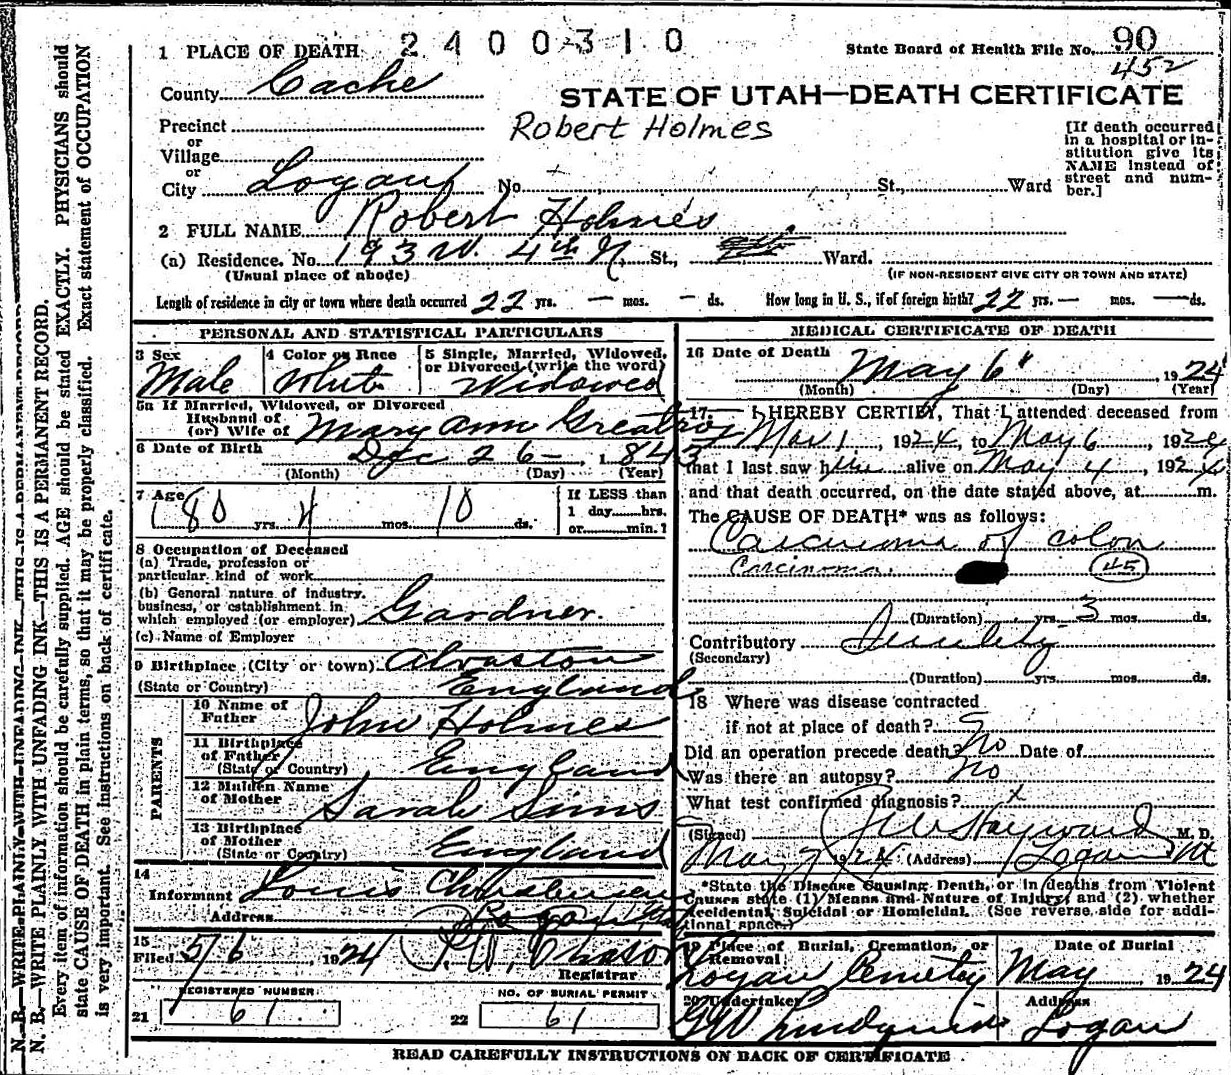 1 PLACE OF DEATH 2400310 State Board of Health File No. 90
452
County Cache
STATE OF UTAH—DEATH CERTIFICATE
Precinct
or
Village
or
City Logan No. St., Ward
Robert Holmes
[If death occurred
in a hospital or in-
stitution give its
NAME instead of
street and num-
ber.]
2 FULL NAME Robert Holmes
(a) Residence. No. 193 W. 4th N. St., Ward.
(Usual place of abode) (IF NON-RESIDENT GIVE CITY OR TOWN AND STATE)
Length of residence in city or town where death occurred 22 yrs. — mos. — ds. How long in U. S., if of foreign birth? 22 yrs. — mos. — ds.
PERSONAL AND STATISTICAL PARTICULARS
3 Sex
Male
4 Color or Race
White
5 Single, Married, Widowed,
or Divorced (write the word)
Widowed
5a If Married, Widowed, or Divorced
Husband of
(or) Wife of Mary Ann
6 Date of Birth Dec 26 — , 1843
(Month) (Day) (Year)
7 Age
80 yrs. 4 mos. 10 ds.
If LESS than
1 day hrs.
or min.?
8 Occupation of Deceased
(a) Trade, profession or
particular kind of work
(b) General nature of industry,
business, or establishment in
which employed (or employer) Gardner.
(c) Name of Employer
9 Birthplace (City or town) Alvaston
(State or Country) England
PARENTS
10 Name of
Father John Holmes
11 Birthplace
of Father
(State or Country) England
12 Maiden Name
of Mother Sarah Sims
13 Birthplace
of Mother
(State or Country) England
14
Informant Louis
Address Logan
15
Filed 5/6, 1924
Registrar
REGISTERED NUMBER
21 61
NO. OF BURIAL PERMIT
22 61
MEDICAL CERTIFICATE OF DEATH
16 Date of Death May 6" , 1924
(Month) (Day) (Year)
17. I HEREBY CERTIFY, That I attended deceased from
Mar 1, 1924, to May 6, 1924
that I last saw him alive on May 4, 1924
and that death occurred, on the date stated above, at m.
The CAUSE OF DEATH* was as follows:
Carcinoma of colon
Carcinoma. 45
(Duration) yrs. 3 mos. ds.
Contributory Senility
(Secondary)
(Duration) yrs. mos. ds.
18 Where was disease contracted
if not at place of death? ?
Did an operation precede death? No Date of
Was there an autopsy? No
What test confirmed diagnosis? x
(Signed) Hayward M. D.
May 7 1924 (Address) Logan Ut
*State the Disease Causing Death, or in deaths from Violent
Causes state (1) Means and Nature of Injury; and (2) whether
Accidental, Suicidal or Homicidal. (See reverse side for addi-
tional space.)
19 Place of Burial, Cremation, or
Removal
Logan Cemetery
Date of Burial
May 1924
20 Undertaker
GW
Address
Logan
READ CAREFULLY INSTRUCTIONS ON BACK OF CERTIFICATE
N. B.—WRITE PLAINLY WITH UNFADING INK—THIS IS A PERMANENT RECORD.
N. B.—WRITE PLAINLY, WITH UNFADING INK—THIS IS A PERMANENT RECORD.
Every item of information should be carefully supplied. AGE should be stated EXACTLY. PHYSICIANS should
state CAUSE OF DEATH in plain terms, so that it may be properly classified. Exact statement of OCCUPATION
is very important. See instructions on back of certificate.